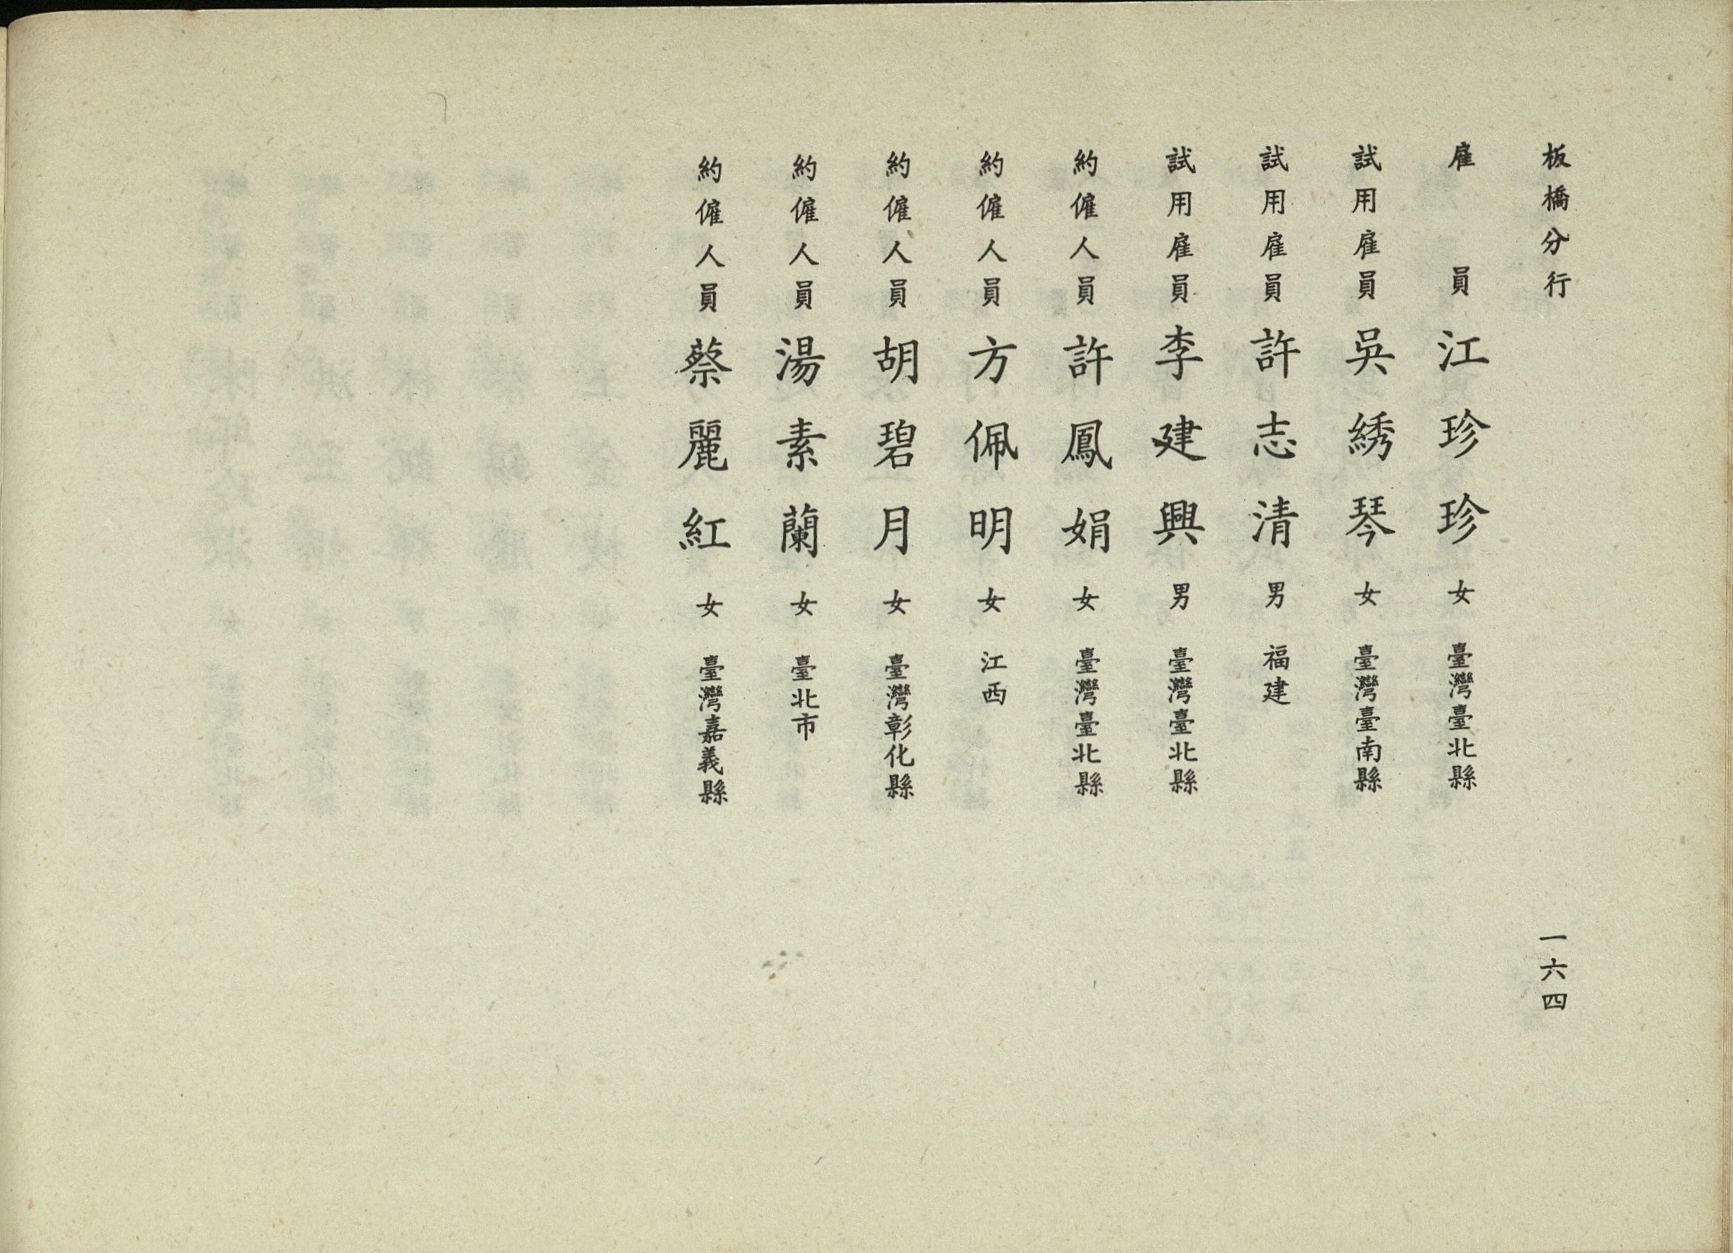 板橋分行
一六四
雇員 江珍珍 女 臺灣臺北縣
試用雇員 吳綉琴 女 臺灣臺南縣
試用雇員 許志清 男 福建
試用雇員 李建興 男 臺灣臺北縣
約僱人員 許鳳娟 女 臺灣臺北縣
約僱人員 方佩明 女 江西
約僱人員 胡碧月 女 臺灣彰化縣
約僱人員 湯素蘭 女 臺北市
約僱人員 蔡麗紅 女 臺灣嘉義縣